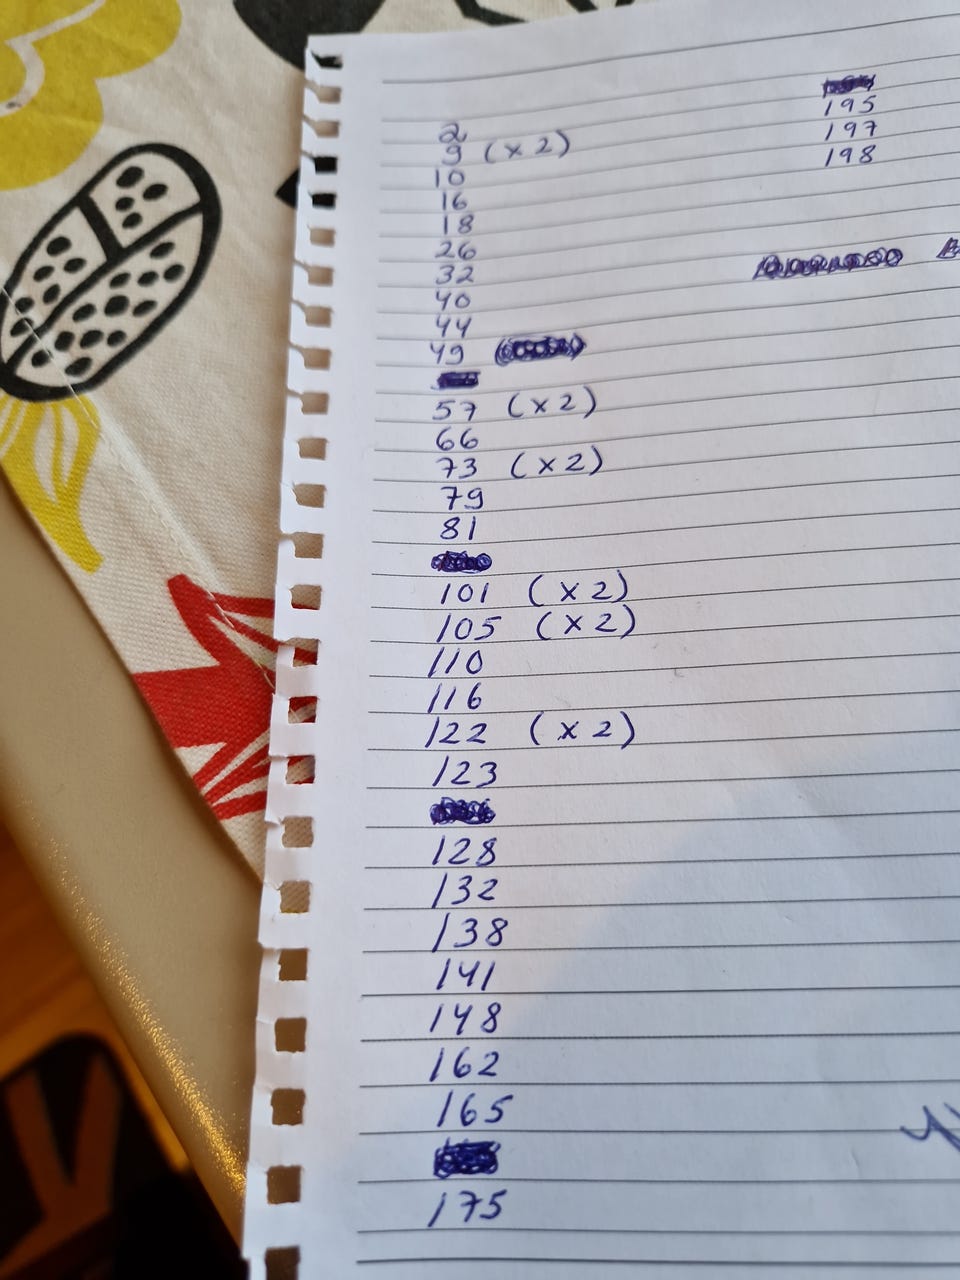 2
9 (x 2)
10
16
18
26
32
40
44
49
57 (x 2)
66
73 (x 2)
79
81
101 (x 2)
105 (x 2)
110
116
122 (x 2)
123
128
132
138
141
148
162
165
175
195
197
198